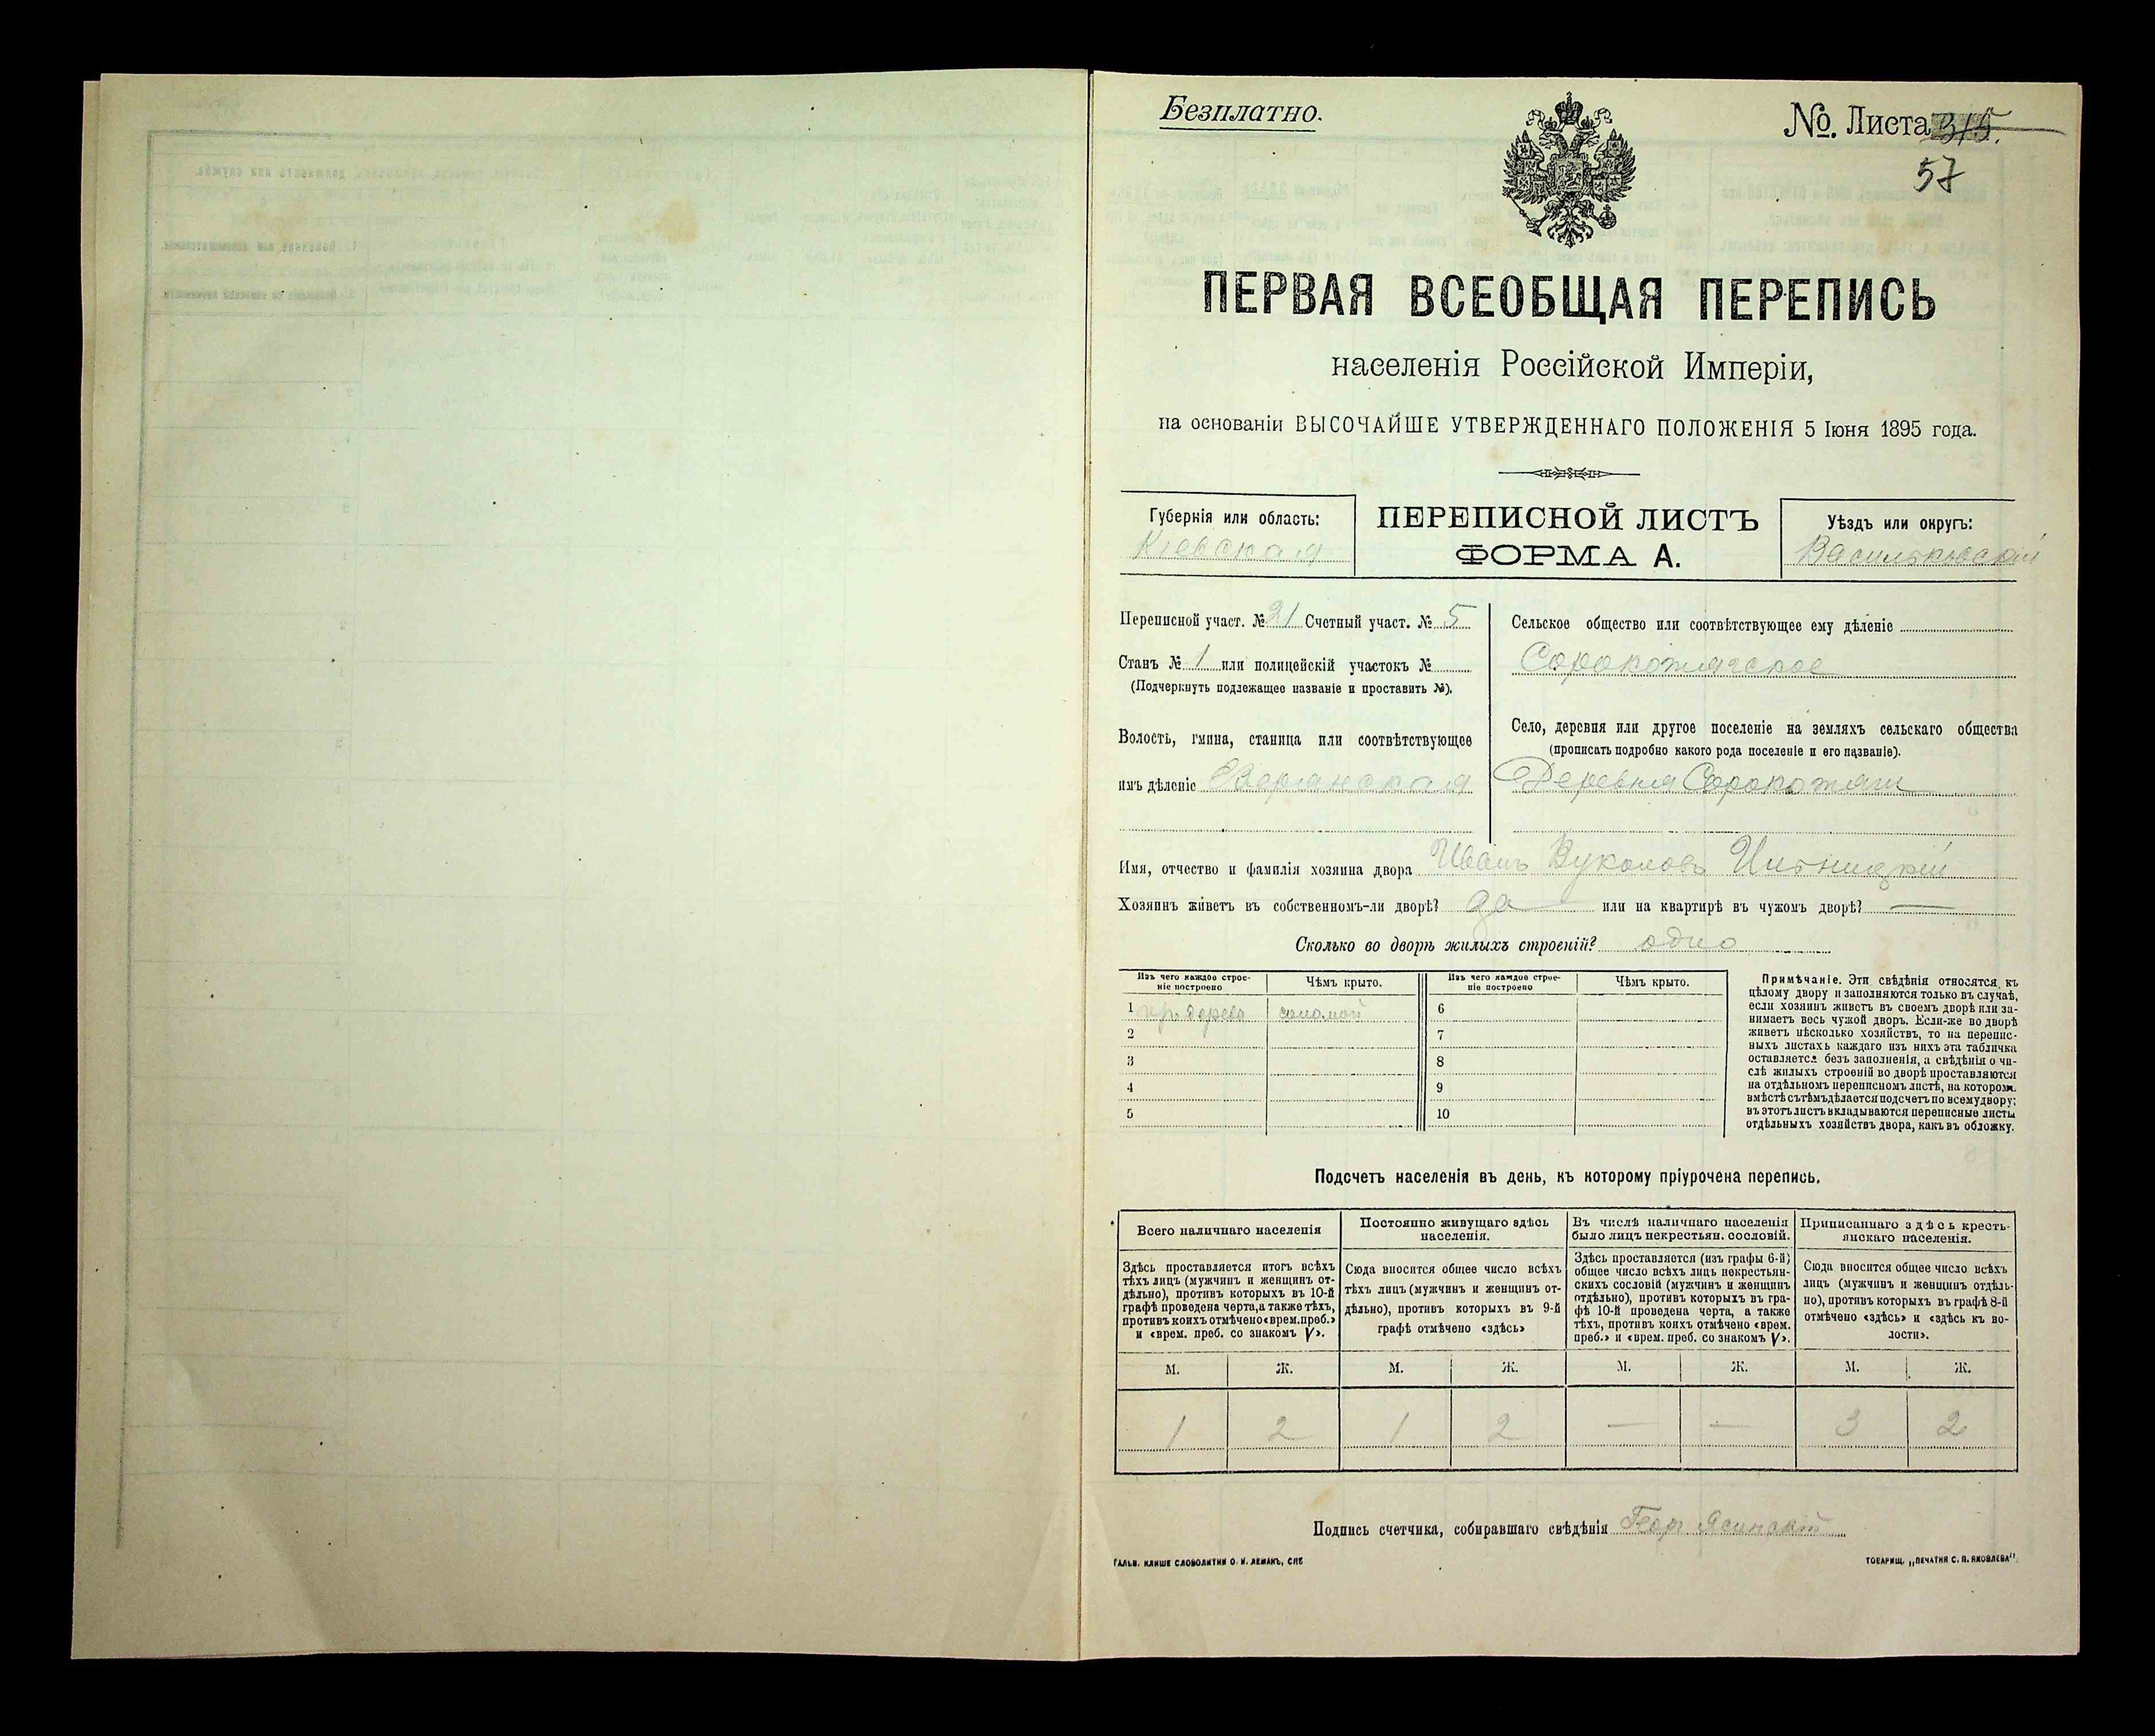 Безплатно.
№. Листа 315.
57
ПЕРВАЯ ВСЕОБЩАЯ ПЕРЕПИСЬ
населенія Россійской Имперіи,
на основаніи ВЫСОЧАЙШЕ УТВЕРЖДЕННАГО ПОЛОЖЕНІЯ 5 Іюня 1895 года.
Губернія или область:
Кіевская
ПЕРЕПИСНОЙ ЛИСТЪ
ФОРМА А.
Уѣздъ или округъ:
Васильковскій
Переписной участ. № 21 Счетный участ. № 5
Станъ № 1 или полицейскій участокъ №
(Подчеркнуть подлежащее названіе и проставить №).
Волость, гмина, станица или соотвѣтствующее
имъ дѣленіе
Сельское общество или соотвѣтствующее ему дѣленіе
Сорокотяжское
Село, деревня или другое поселеніе на земляхъ сельскаго общества
(прописать подробно какого рода поселеніе и его названіе).
Деревня Сорокотяги
Имя, отчество и фамилія хозяина двора Иванъ Вуколовъ
Хозяинъ живетъ въ собственномъ-ли дворѣ? да или на квартирѣ въ чужомъ дворѣ? —
Сколько во дворѣ жилыхъ строеній? одно
Изъ чего каждое строе-
ніе построено
Чѣмъ крыто.
Изъ чего каждое строе-
ніе построено
Чѣмъ крыто.
1 дерево соломой 6
2 7
3 8
4 9
5 10
Примѣчаніе. Эти свѣдѣнія относятся къ
цѣлому двору и заполняются только въ случаѣ,
если хозяинъ живетъ въ своемъ дворѣ или за-
нимаетъ весь чужой дворъ. Если-же во дворѣ
живетъ нѣсколько хозяйствъ, то на перепис-
ныхъ листахъ каждаго изъ нихъ эта табличка
оставляется безъ заполненія, а свѣдѣнія о чи-
слѣ жилыхъ строеній во дворѣ проставляются
на отдѣльномъ переписномъ листѣ, на которомъ
вмѣстѣ съ тѣмъ дѣлается подсчетъ по всему двору;
въ этотъ листъ вкладываются переписные листы
отдѣльныхъ хозяйствъ двора, какъ въ обложку.
Подсчетъ населенія въ день, къ которому пріурочена перепись.
Всего наличнаго населенія
Здѣсь проставляется итогъ всѣхъ
тѣхъ лицъ (мужчинъ и женщинъ от-
дѣльно), противъ которыхъ въ 10-й
графѣ проведена черта, а также тѣхъ,
противъ коихъ отмѣчено «врем. преб.»
и «врем. преб. со знакомъ V».
Постоянно живущаго здѣсь
населенія.
Сюда вносится общее число всѣхъ
тѣхъ лицъ (мужчинъ и женщинъ от-
дѣльно), противъ которыхъ въ 9-й
графѣ отмѣчено «здѣсь»
Въ числѣ наличнаго населенія
было лицъ некрестьян. сословій.
Здѣсь проставляется (изъ графы 6-й)
общее число всѣхъ лицъ некрестьян-
скихъ сословій (мужчинъ и женщинъ
отдѣльно), противъ которыхъ въ гра-
фѣ 10-й проведена черта, а также
тѣхъ, противъ коихъ отмѣчено «врем.
преб.» и «врем. преб. со знакомъ V».
Приписаннаго здѣсь кресть-
янскаго населенія.
Сюда вносится общее число всѣхъ
лицъ (мужчинъ и женщинъ отдѣль-
но), противъ которыхъ въ графѣ 8-й
отмѣчено «здѣсь» и «здѣсь къ во-
лости».
М. Ж. М. Ж. М. Ж. М. Ж.
1 2 1 2 — — 3 2
Подпись счетчика, собиравшаго свѣдѣнія Геор. Ясинскій
ГАЛЬВ. КЛИШЕ СЛОВОЛИТНИ О. И. ЛЕМАНЪ, СПБ
ТОВАРИЩ. „ПЕЧАТНЯ С. П. ЯКОВЛЕВА"